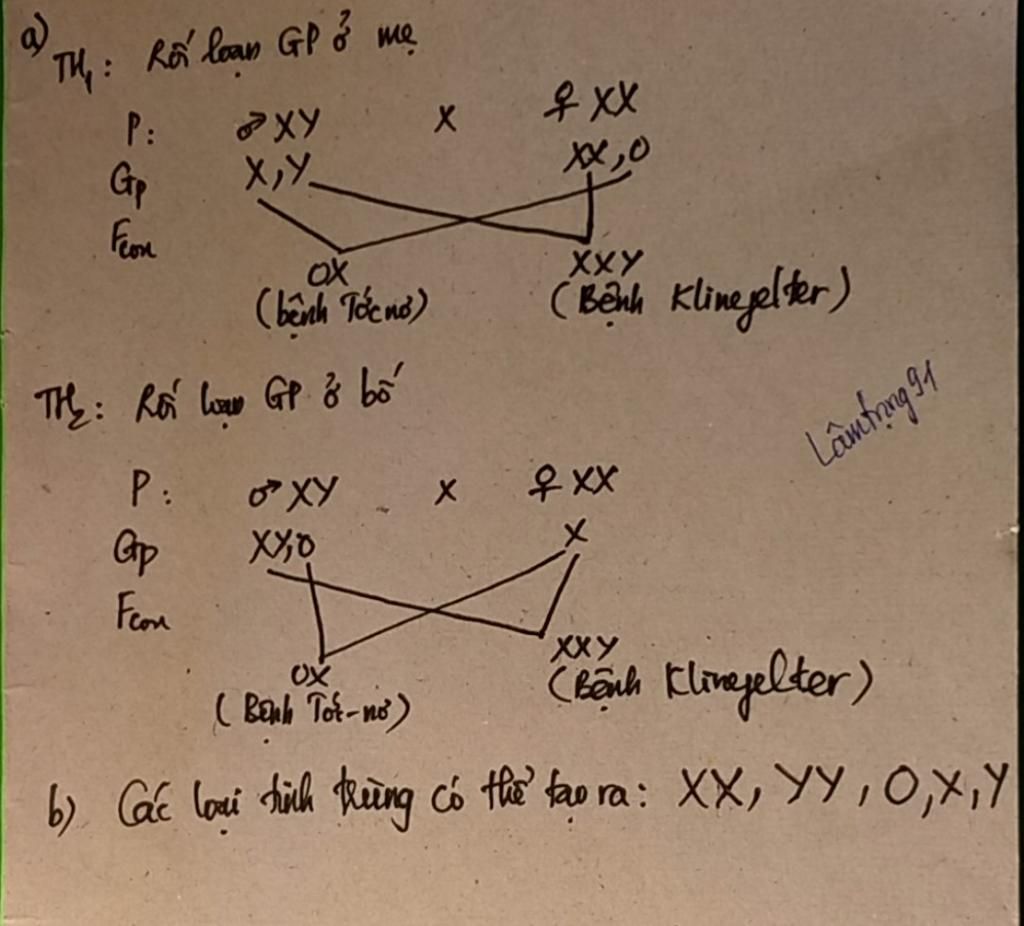 a)
TH1: Rối loạn GP ở mẹ
P: ♂ XY x ♀ XX
Gp X, Y XX, O
Fcon
OX XXY
(bệnh Tớcnơ) (Bệnh Klinefelter)
TH2: Rối loạn GP ở bố
Lâmtrọng91
P: ♂ XY x ♀ XX
Gp XY, O X
Fcon
OX XXY
(Bệnh Tớc-nơ) (Bệnh Klinefelter)
b) Các loại tinh trùng có thể tạo ra: XX, YY, O, X, Y